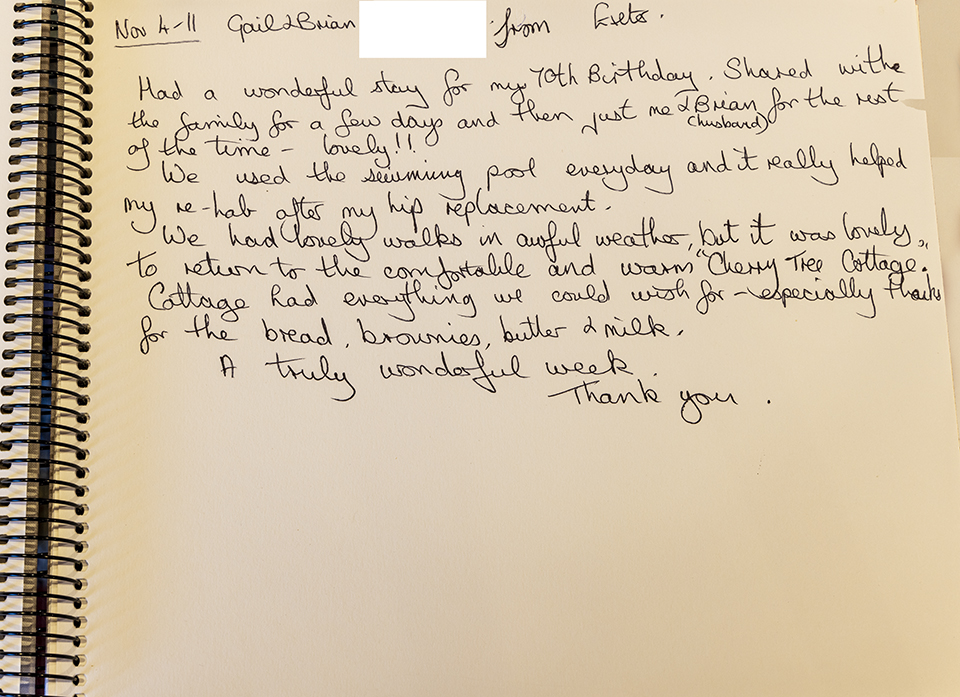 Nov 4-11 Gail & Brian from Exeter.
Had a wonderful stay for my 70th Birthday. Shared with
the family for a few days and then just me & Brian for the rest
(husband)
of the time - lovely!!
We used the swimming pool everyday and it really helped
my re-hab after my hip replacement.
We had lovely walks in awful weather, but it was lovely
to return to the comfortable and warm "Cherry Tree Cottage."
Cottage had everything we could wish for - especially thanks
for the bread, brownies, butter & milk.
A truly wonderful week.
Thank you.